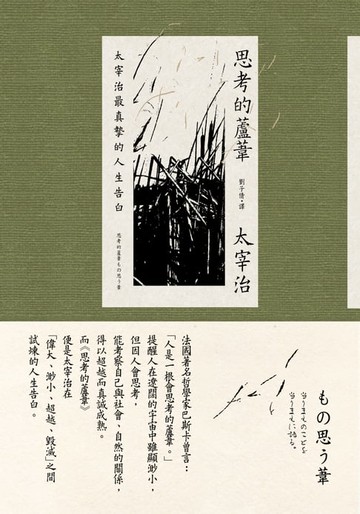 思考的蘆葦
劉子倩・譯
太宰治
太宰治最真摯的人生告白
思考的蘆葦もの思う葦
もの思う葦
法國著名哲學家巴斯卡曾言：
「人是一根會思考的蘆葦。」
提醒人在遼闊的宇宙中雖顯渺小，
但因人會思考，
能考察自己與社會、自然的關係，
得以超越而真誠成熟。
而《思考的蘆葦》
便是太宰治在
「偉大、渺小、超越、毀滅」之間
試煉的人生告白。